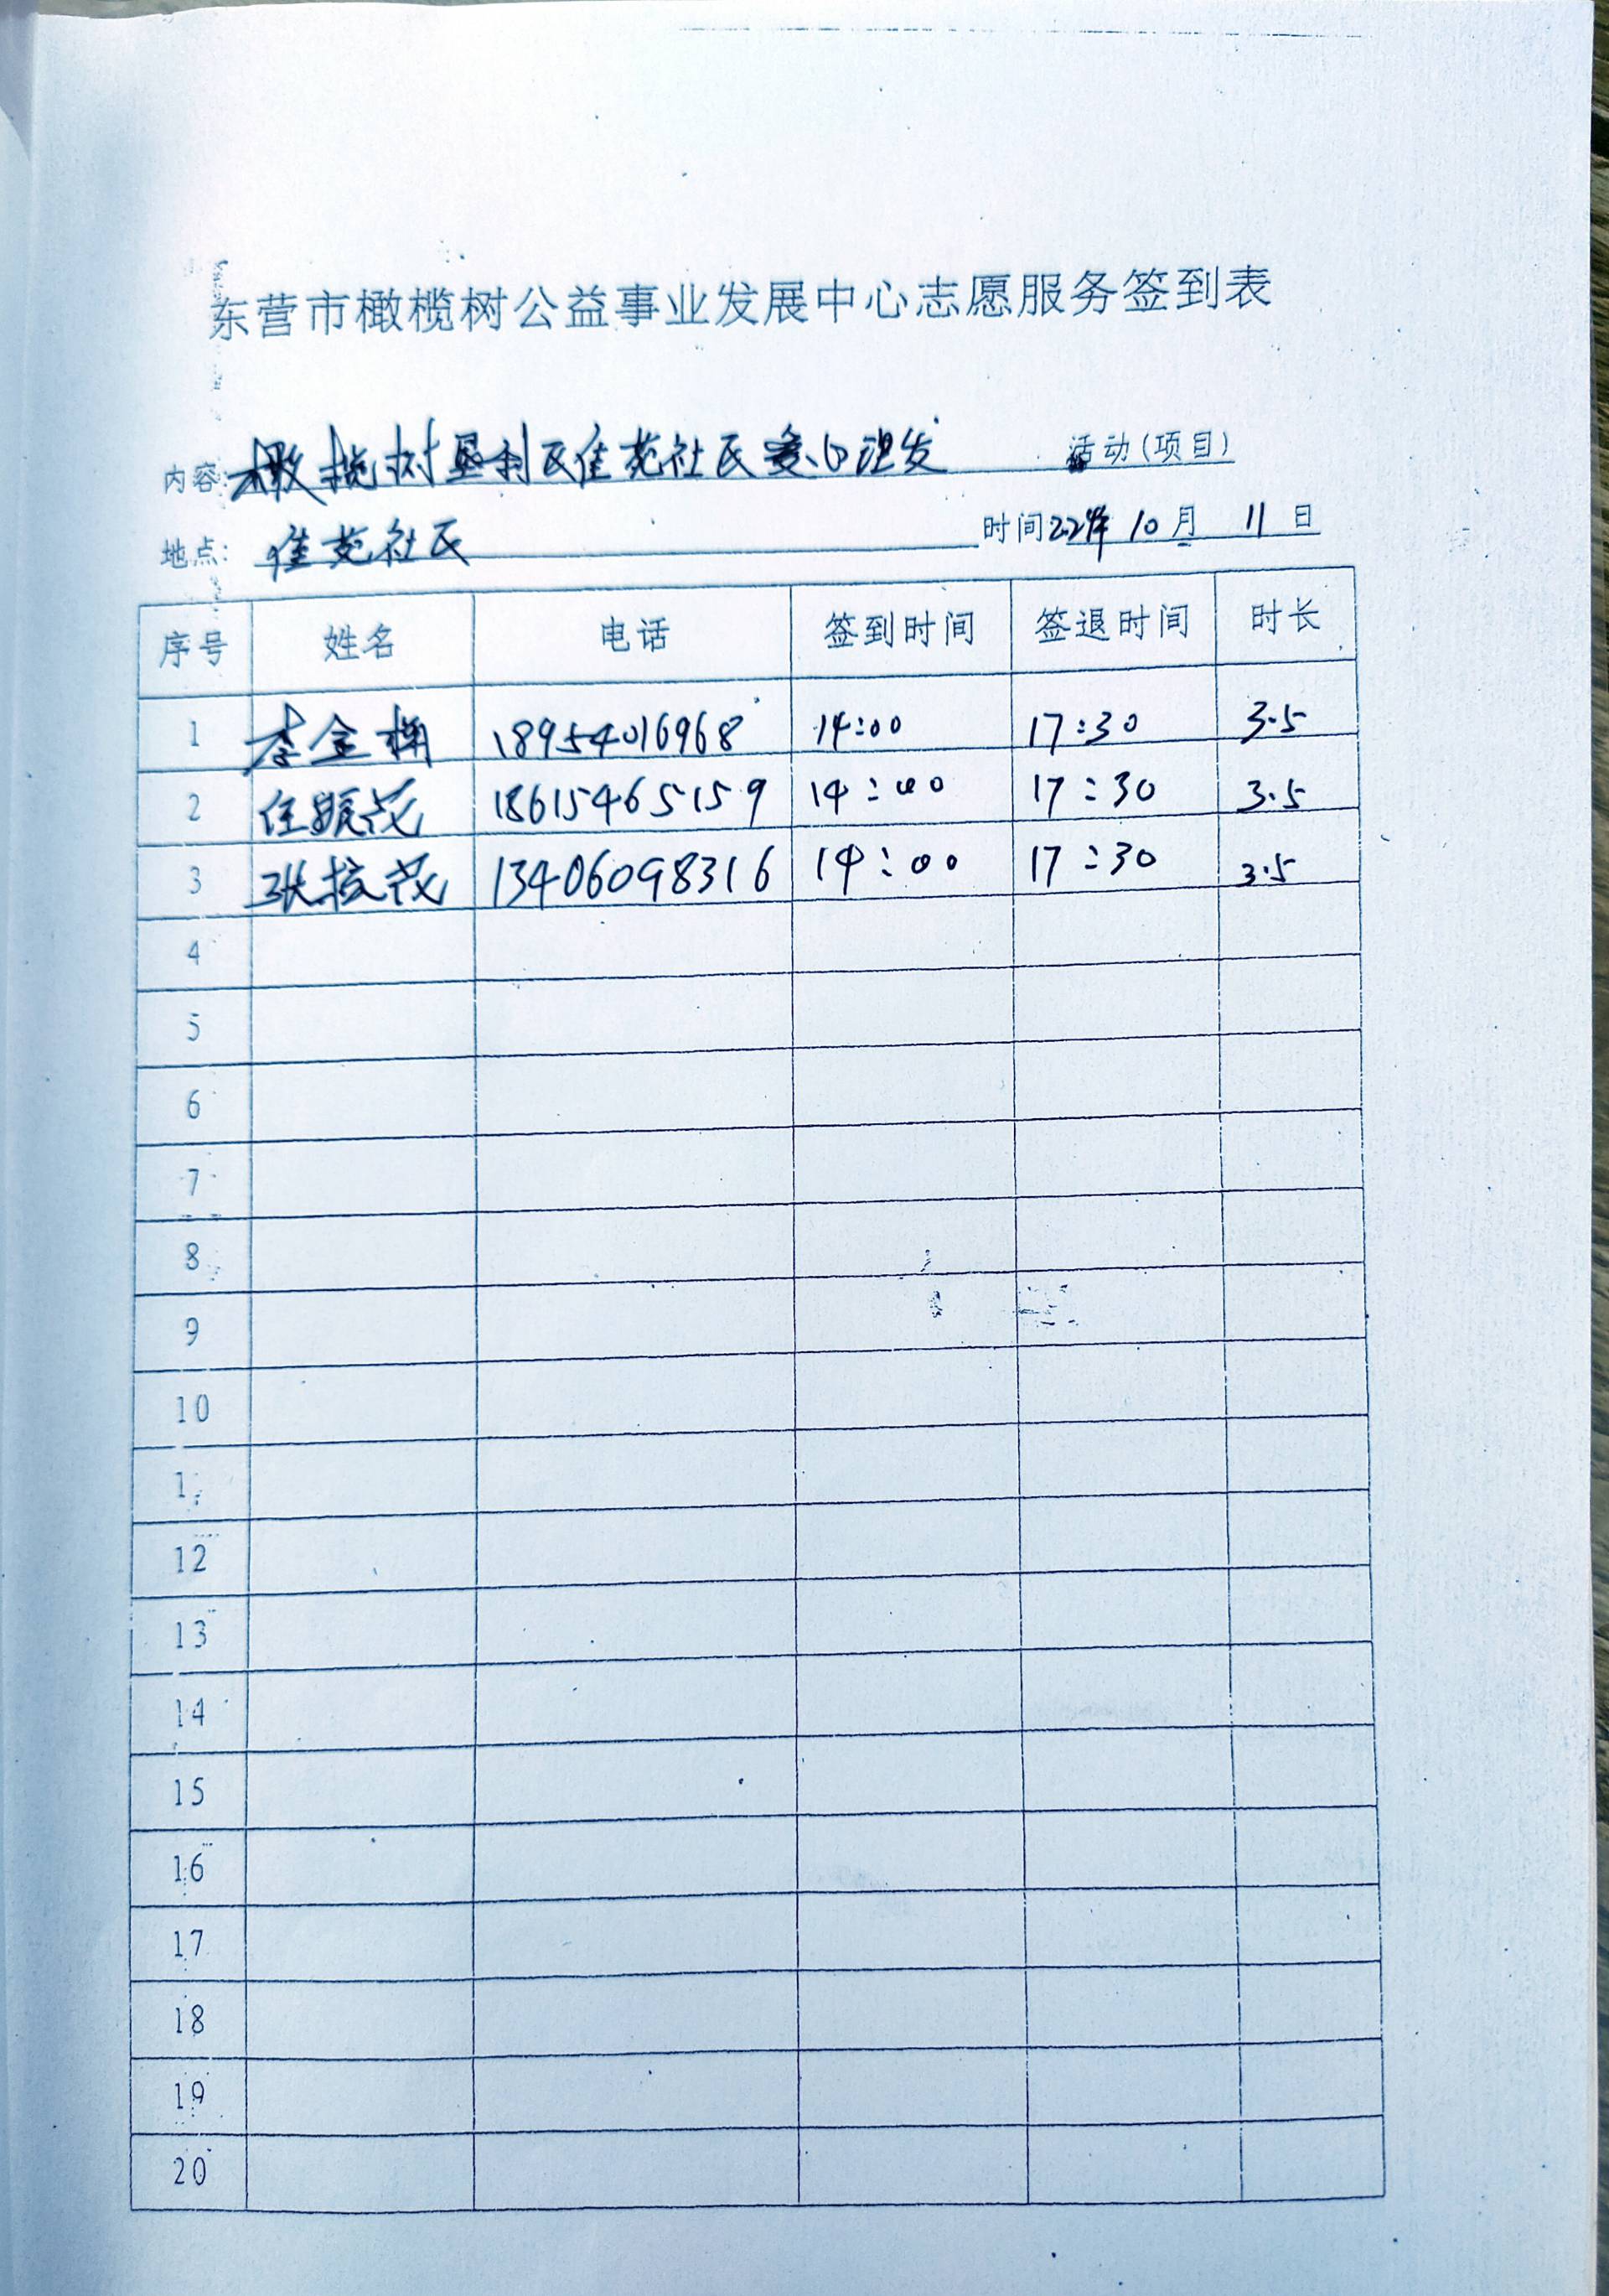 东营市橄榄树公益事业发展中心志愿服务签到表
内容: 橄榄树垦利区佳苑社区爱心理发 活动(项目)
地点: 佳苑社区 时间 22年 10 月 11 日
序号 姓名 电话 签到时间 签退时间 时长
1 李金梅 18954016968 14:00 17:30 3.5
2 任振茂 18615465159 14:00 17:30 3.5
3 张 13406098316 14:00 17:30 3.5
4
5
6
7
8
9
10
1
12
13
14
15
16
17
18
19
20